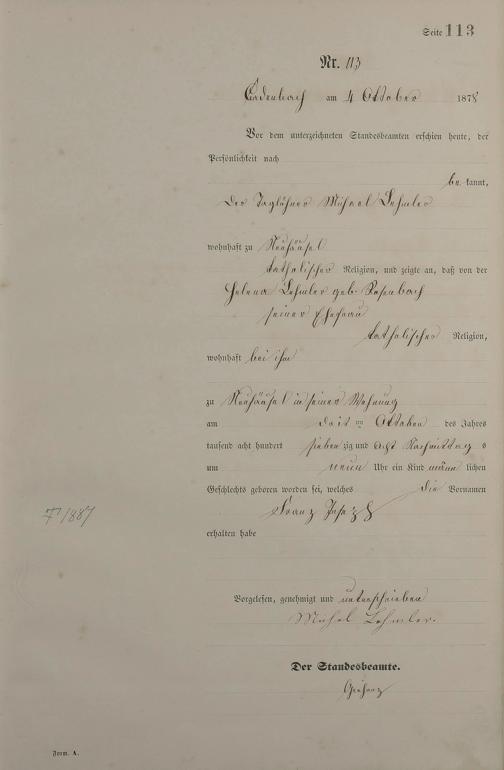 Seite 113
Nr. 113
Cadenbach am 4 Oktober 1878
Vor dem unterzeichneten Standesbeamten erschien heute, der
Persönlichkeit nach
be kannt,
der Taglöhner Michael Lehmler
wohnhaft zu Neuhäusel
katholischer Religion, und zeigte an, daß von der
Helena Lehmler geb. Rosenbach
seiner Ehefrau
katholischer Religion,
wohnhaft bei ihm
zu Neuhäusel in seiner Wohnung
am ten Oktober des Jahres
tausend acht hundert sieben zig und acht Nachmittag s
um neun Uhr ein Kind männ lichen
Geschlechts geboren worden sei, welches die Vornamen
Franz Joseph
erhalten habe
1887
Vorgelesen, genehmigt und unterschrieben
Michel Lehmler.
Der Standesbeamte.
Form. A.